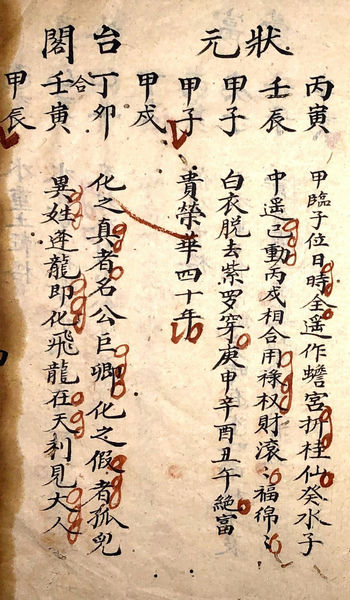 狀元
丙寅 甲臨子位日時全遥作蟾宮折桂仙癸水子
壬辰 中遥巳動丙戌相合用祿权財滾〻福綿〻
甲子 白衣脱去紫罗穿庚申辛酉丑午絶富
甲子 貴榮華四十年
甲戌
台閣
丁卯 化之真者名公巨卿化之假者孤兒
合
壬寅 異姓逢龍即化飛龍在天利見大人
甲辰